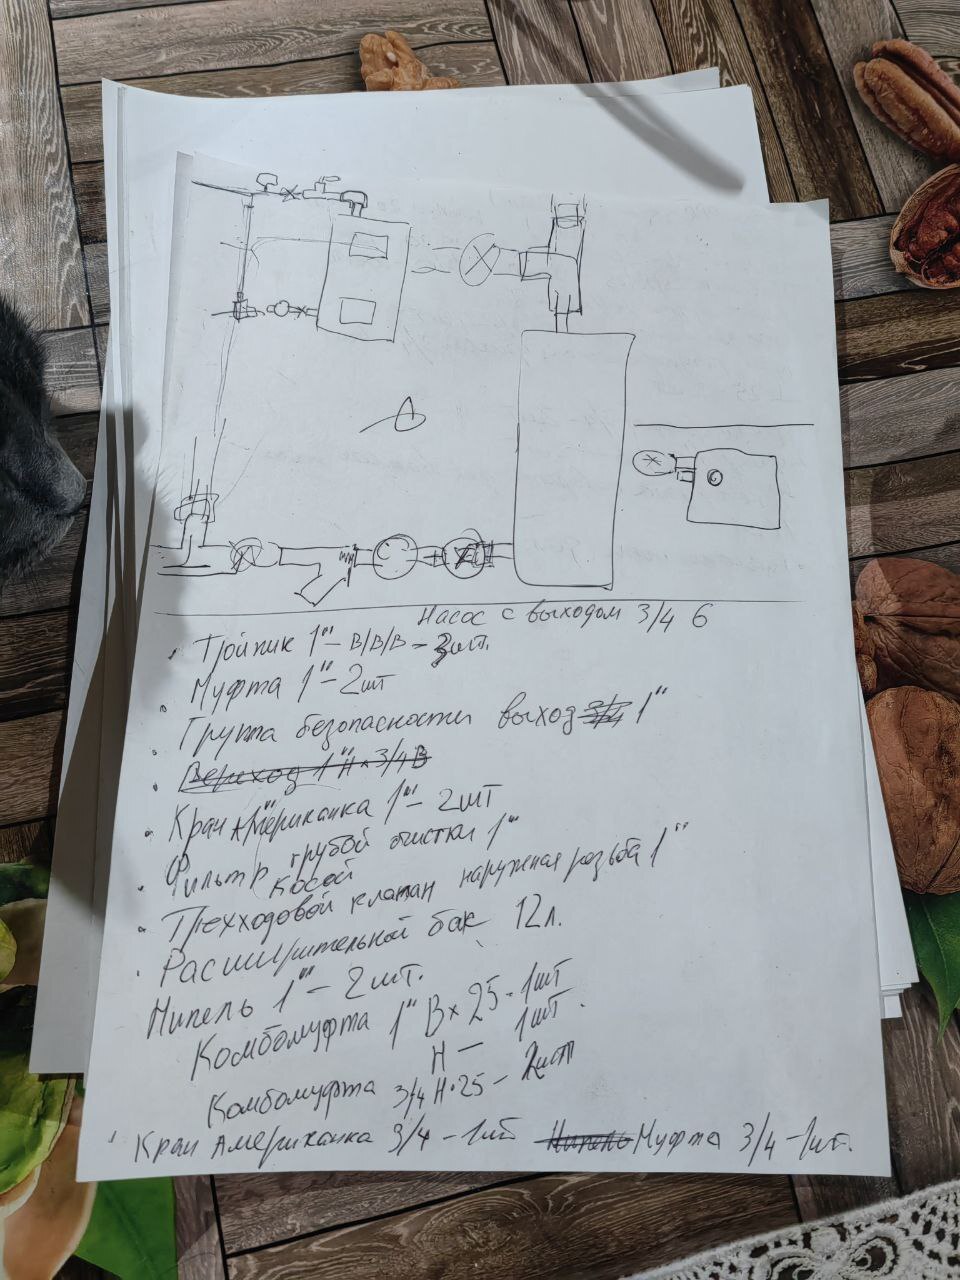 Насос с выходом 3/4 б
Тройник 1" - В/В/В - 3шт.
Муфта 1" - 2шт
Группа безопасности выход 3/4 1"
Переход 1"Н × 3/4В
Кран Американка 1" - 2шт
Фильтр грубой очистки 1"
косой
Трехходовой клапан наружная резьба 1"
Расширительной бак 12л.
Нипель 1" - 2шт.
Комбомуфта 1" В × 25 - 1шт
Н — 1шт.
Комбомуфта 3/4 Н · 25 - 2шт
Кран Американка 3/4 - 1шт Нипель Муфта 3/4 - 1шт.